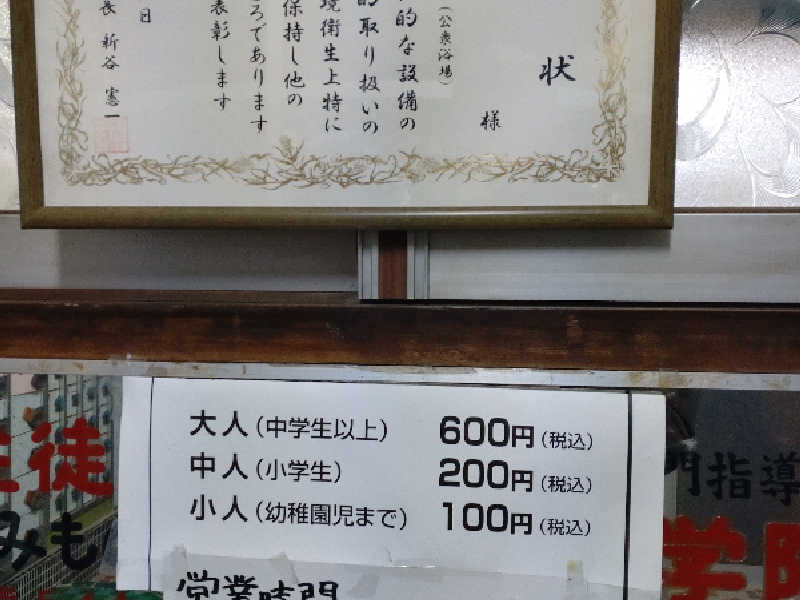 状
様
(公衆浴場)
的な設備の
的取り扱いの
境衛生上特に
保持し他の
ろであります
表彰します
日
長 新谷 憲一
大人(中学生以上) 600円(税込)
中人(小学生) 200円(税込)
小人(幼稚園児まで) 100円(税込)
営業時間
生徒
みも
門指導
学院